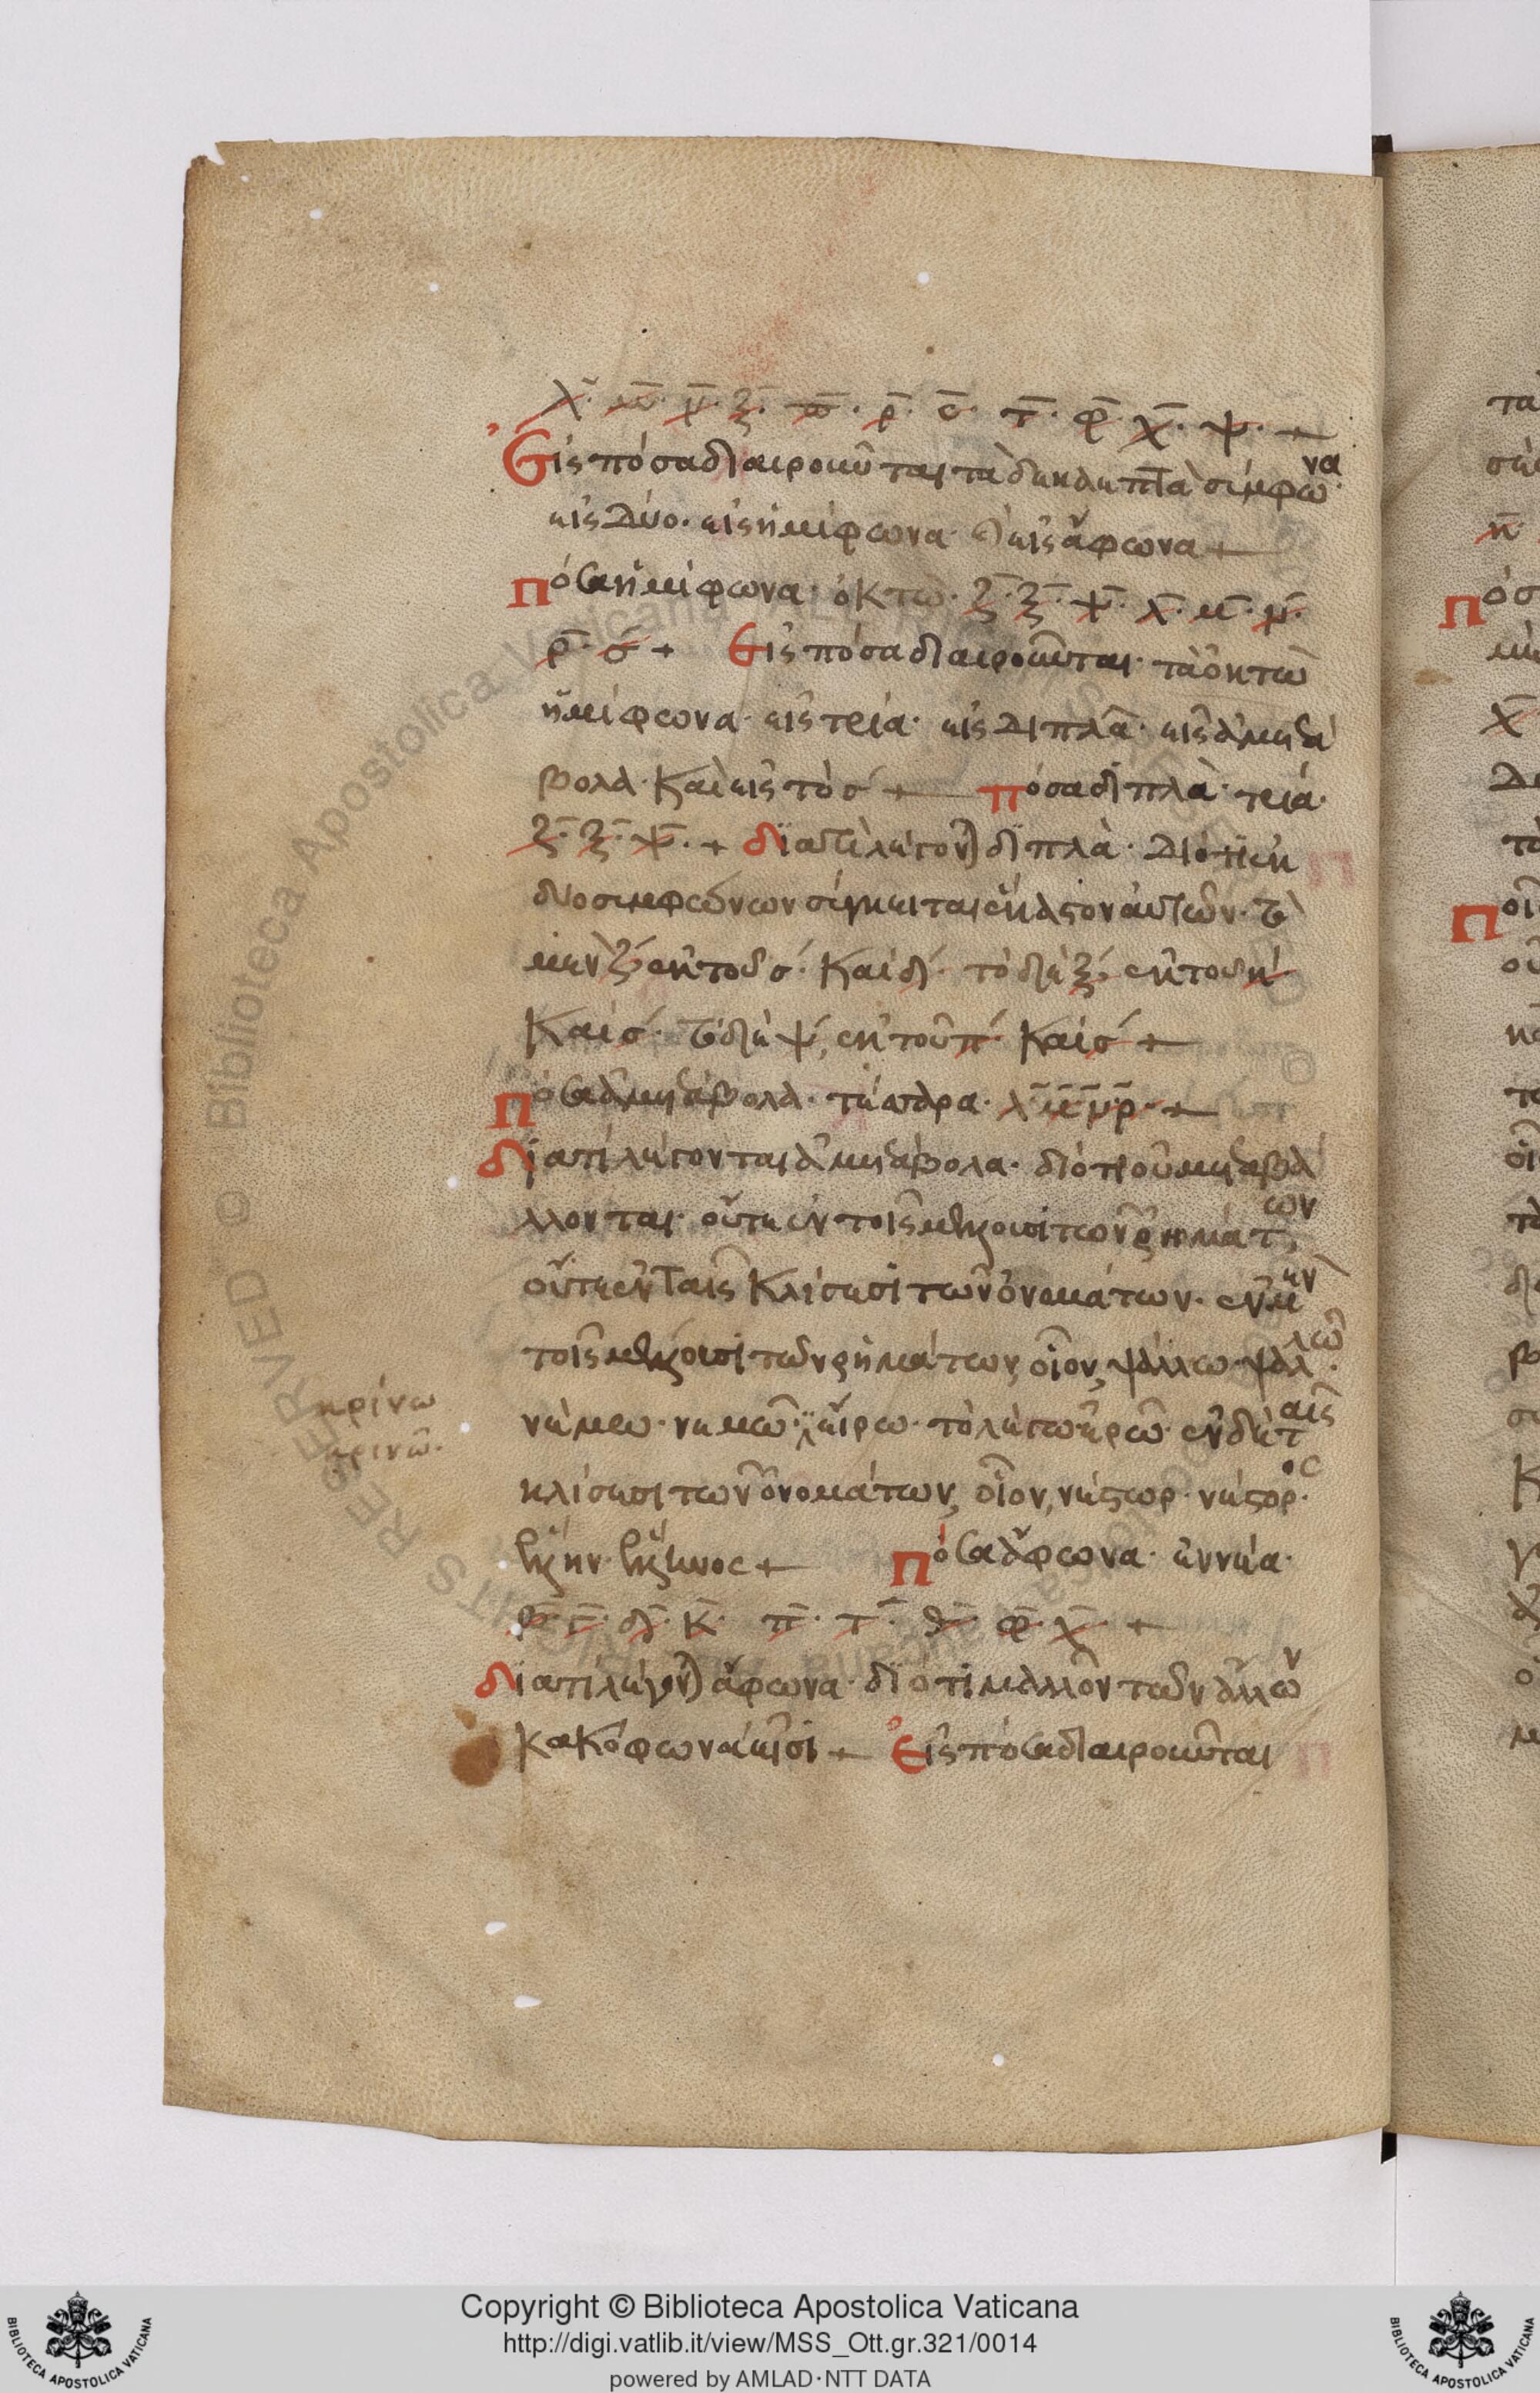 λ̄· μ̄· ν̄· ξ̄· π̄· ρ̄· σ̄· τ̄· φ̄· χ̄· ψ̄·
Εἰς πόσα διαιροῦνται τὰ δεκαεπτὰ σύμφωνα·
εἰς δύο· εἰς ἡμίφωνα· καὶ εἰς ἄφωνα +
Πόσα ἡμίφωνα· ὀκτώ· ζ̄· ξ̄· ψ̄· λ̄· μ̄· ν̄·
ρ̄· σ̄ + Εἰς πόσα διαιροῦνται· τὰ ὀκτὼ
ἡμίφωνα· εἰς τρία· εἰς διπλᾶ· εἰς ἀμετά
βολα· καὶ εἰς τὸ σ´ + πόσα διπλὰ· τρία·
ζ̄· ξ̄· ψ̄· + διατί λέγονται διπλὰ· διότι ἐκ
δύο συμφώνων σύγκειται ἕκαστον αὐτῶν· τὸ
μὲν ζ´ ἐκ τοῦ σ´· καὶ δ´· τὸ δὲ ξ´ ἐκ τοῦ κ´
καὶ σ´· τὸ δὲ ψ´, ἐκ τοῦ π´ καὶ σ´ +
Πόσα ἀμετάβολα· τέσσαρα· λ̄· μ̄· ν̄· ρ̄· +
διατί λέγονται ἀμετάβολα· διότι οὐ μεταβά
λλονται· οὔτε ἐν τοῖς μέλλουσι τῶν ῥημάτων,
οὔτε ἐν ταῖς κλίσεσι τῶν ὀνομάτων· ἐν μὲν
τοῖς μέλλουσι τῶν ῥημάτων, οἷον, ψάλλω ψαλῶ·
νέμω· νεμῶ· κείρω· τὸ λέγω κερῶ· ἐν δὲ ταῖς
κλίσεσι τῶν ὀνομάτων, οἷον, νέστωρ· νέστορος·
Πόσα ἄφωνα· ἐννέα·
β̄· γ̄· δ̄· κ̄· π̄· τ̄· θ̄· φ̄· χ̄· +
διατί λέγονται ἄφωνα· διότι μᾶλλον τῶν ἄλλων
κακόφωνά εἰσι + Εἰς πόσα διαιροῦνται
κρίνω
κρινῶ·
τὰ
Biblioteca Apostolica Vaticana
Copyright © Biblioteca Apostolica Vaticana
http://digi.vatlib.it/view/MSS_Ott.gr.321/0014
powered by AMLAD·NTT DATA
BIBLIOTECA APOSTOLICA VATICANA
BIBLIOTECA APOSTOLICA VATICANA